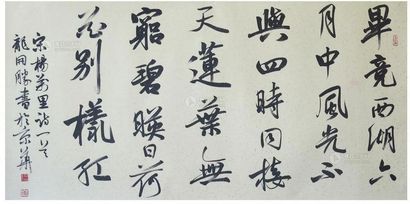 畢竟西湖六
月中風光不
與四時同接
天蓮葉無
窮碧暎日荷
花别樣紅
宋楊萬里詩一首
龍開勝書於京華